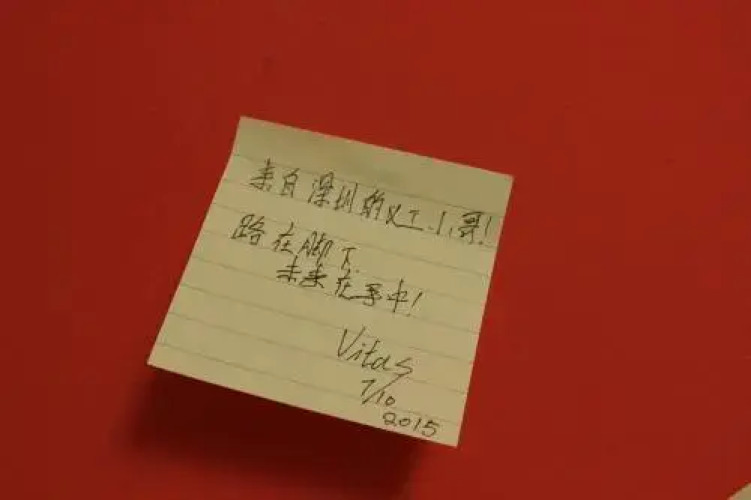 来自深圳的义工小哥!
路在脚下
未来在手中!
Vitas
7/10
2015